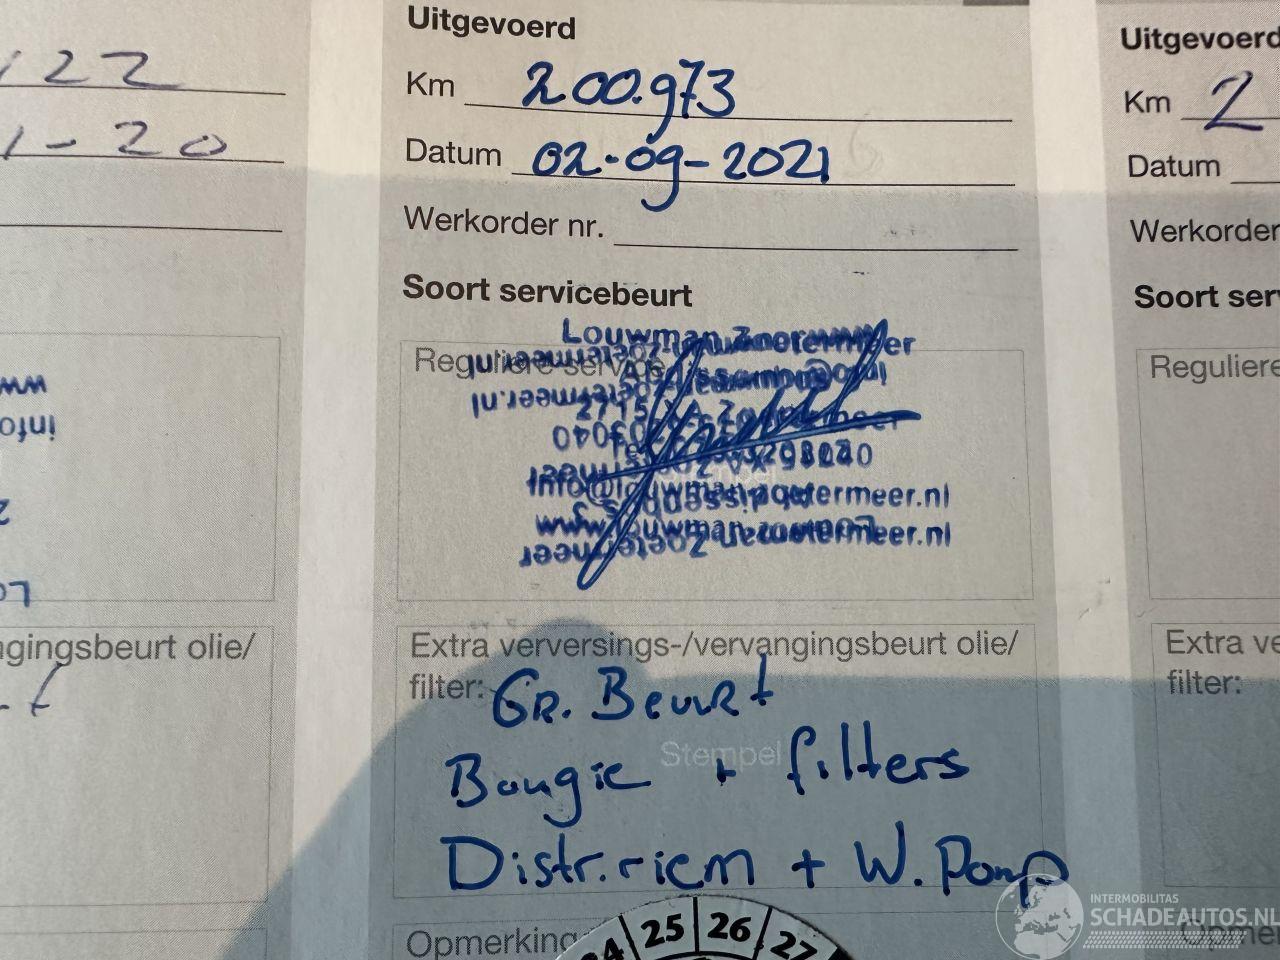 122
1-20
ww
info
gingsbeurt olie/
Uitgevoerd
Km 200.973
Datum 02-09-2021
Werkorder nr.
Soort servicebeurt
Reguliere service
Louwman Zoetermeer
info@louwmanzoetermeer.nl
www.louwmanzoetermeer.nl
Extra verversings-/vervangingsbeurt olie/
filter: Gr. Beurt
Stempel
Bougie + filters
Distr.riem + W. Pomp
Opmerking
24 25 26 27
Uitgevoerd
Km 2
Datum
Werkorder
Soort ser
Reguliere
Extra ve
filter:
Opme
INTERMOBILITAS
SCHADEAUTOS.NL